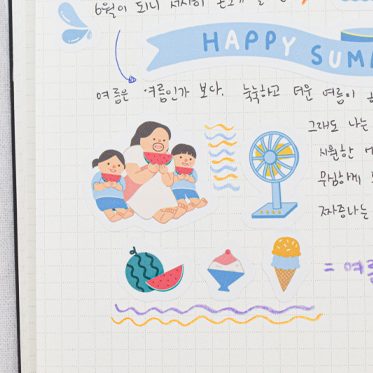 6월이 되니 서서히
HAPPY SUM
여름은 여름인가 보다. 눅눅하고 더운 여름이
그래도 나는
시원한
무심하게
짜증나는
= 여름